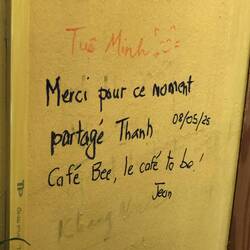 Tuê Minh
Merci pour ce moment
partagé Thanh 08/05/25
Café Bee, le café to be!
Jean